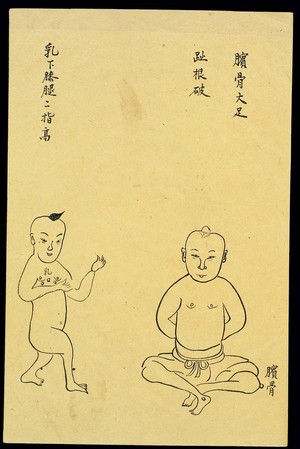 臏骨大足
趾根破
乳下膝腿二指高
乳
臏骨